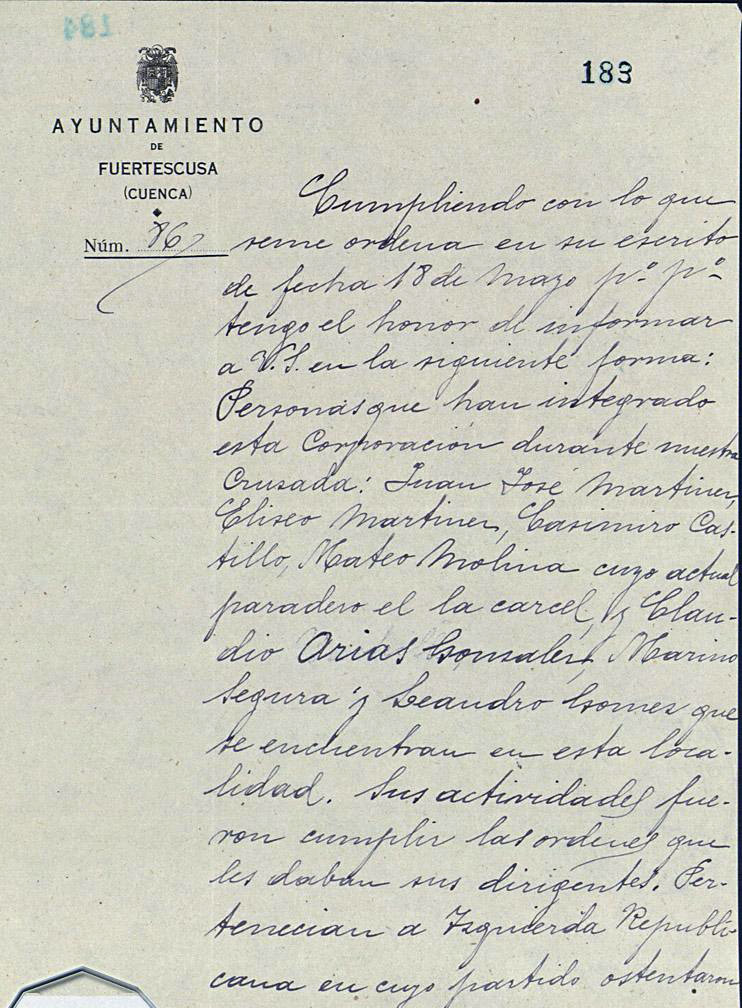 184
183
AYUNTAMIENTO
DE
FUERTESCUSA
(CUENCA)
Núm. 867
Cumpliendo con lo que
seme ordena en su escrito
de fecha 18 de Mayo pº pº
tengo el honor de informar
a V.S. en la siguiente forma:
Personas que han integrado
esta Corporación durante nuestra
Cruzada: Juan José Martinez,
Eliseo Martinez, Casimiro Cas-
tillo, Mateo Molina cuyo actual
paradero el la carcel, y Clau-
dio Arias Gonzalez, Marino
Segura y Leandro Gomez que
se encuentran en esta loca-
lidad. Sus actividades fue-
ron cumplir las ordenes que
les daban sus dirigentes. Per-
tenecian a Izquierda Republi-
cana en cuyo partido ostentaron